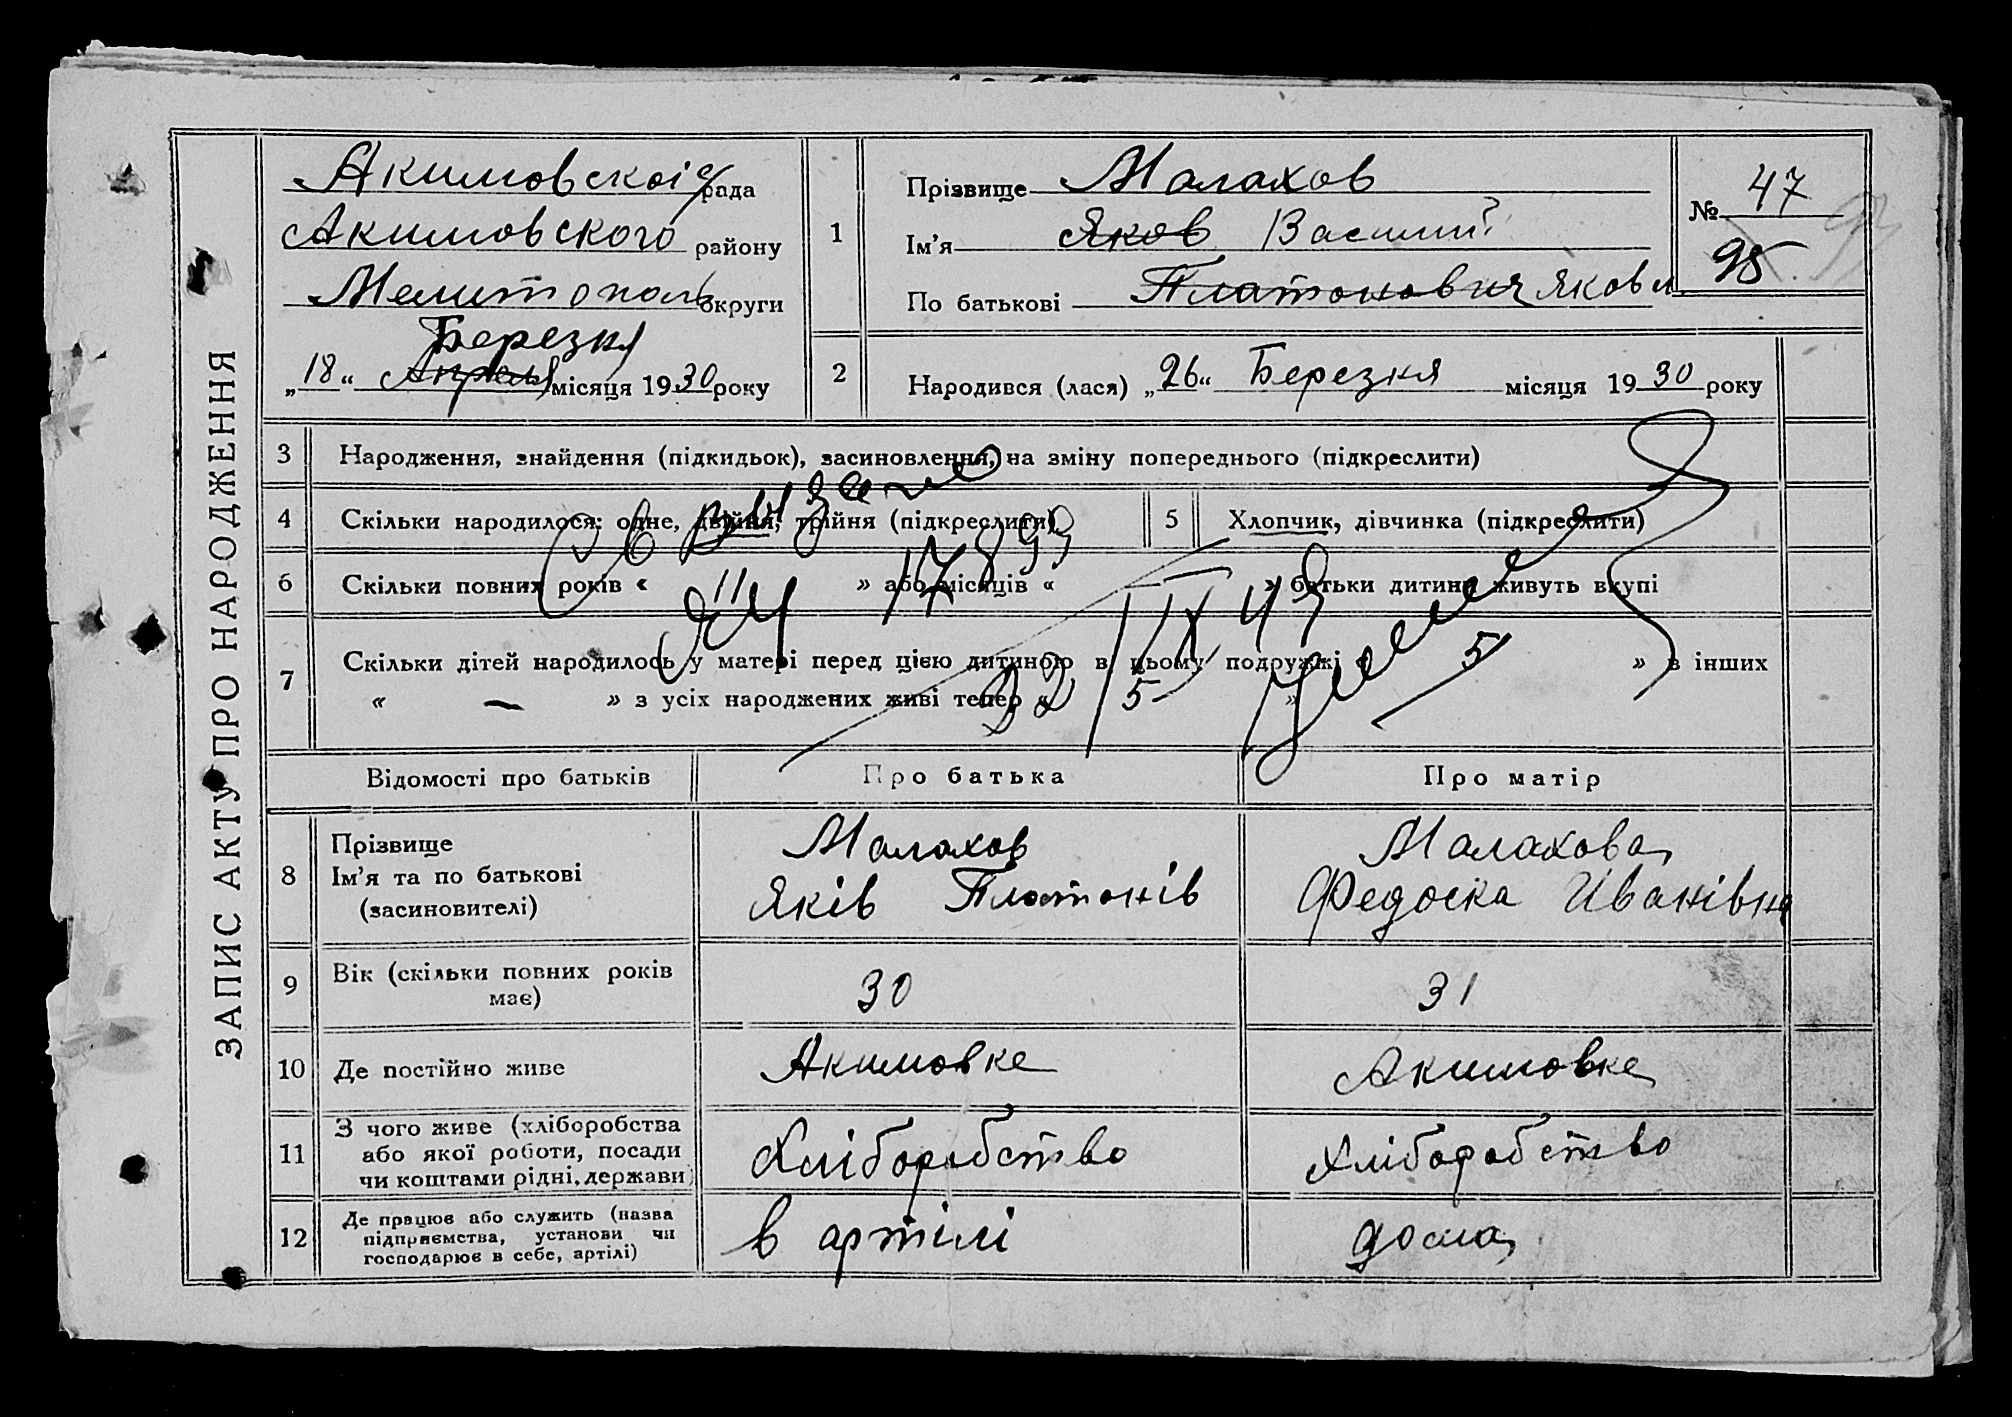 ЗАПИС АКТУ ПРО НАРОДЖЕННЯ
Акимовскоі с/рада
Акимовского району
Мелитополь округи
Березня
„18“ Апреля місяця 1930 року
1
Прізвище Малахов
Ім’я Яков Василий
По батькові Платонович Яковл
№ 47
98
2
Народився (лася) „26“ Березня місяця 1930 року
3 Народження, знайдення (підкидьок), засиновлення, на зміну попереднього (підкреслити)
4 Скільки народилося: одне, двійня, трійня (підкреслити)
5 Хлопчик, дівчинка (підкреслити)
Св выдано
6 Скільки повних років « 11 » або місяців « — » батьки дитини живуть вкупі
7 Скільки дітей народилось у матері перед цією дитиною в цьому подружжі « 5 » в інших
« — » з усіх народжених живі тепер « 5 »
Відомості про батьків
Про батька
Про матір
8
Прізвище
Ім’я та по батькові
(засиновителі)
Малахов
Яків Платонів
Малахова
Федоска Иванівна
9
Вік (скільки повних років
має)
30
31
10 Де постійно живе
Акимовке
Акимовке
11
З чого живе (хліборобства
або якої роботи, посади
чи коштами рідні, держави)
Хліборобство
Хліборобство
12
Де працює або служить (назва
підприємства, установи чи
господарює в себе, артілі)
в артілі
дома